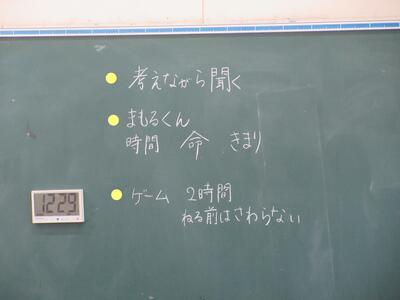 考えながら聞く
まもるくん
時間 命 きまり
ゲーム 2時間
ねる前はさわらない
12:29